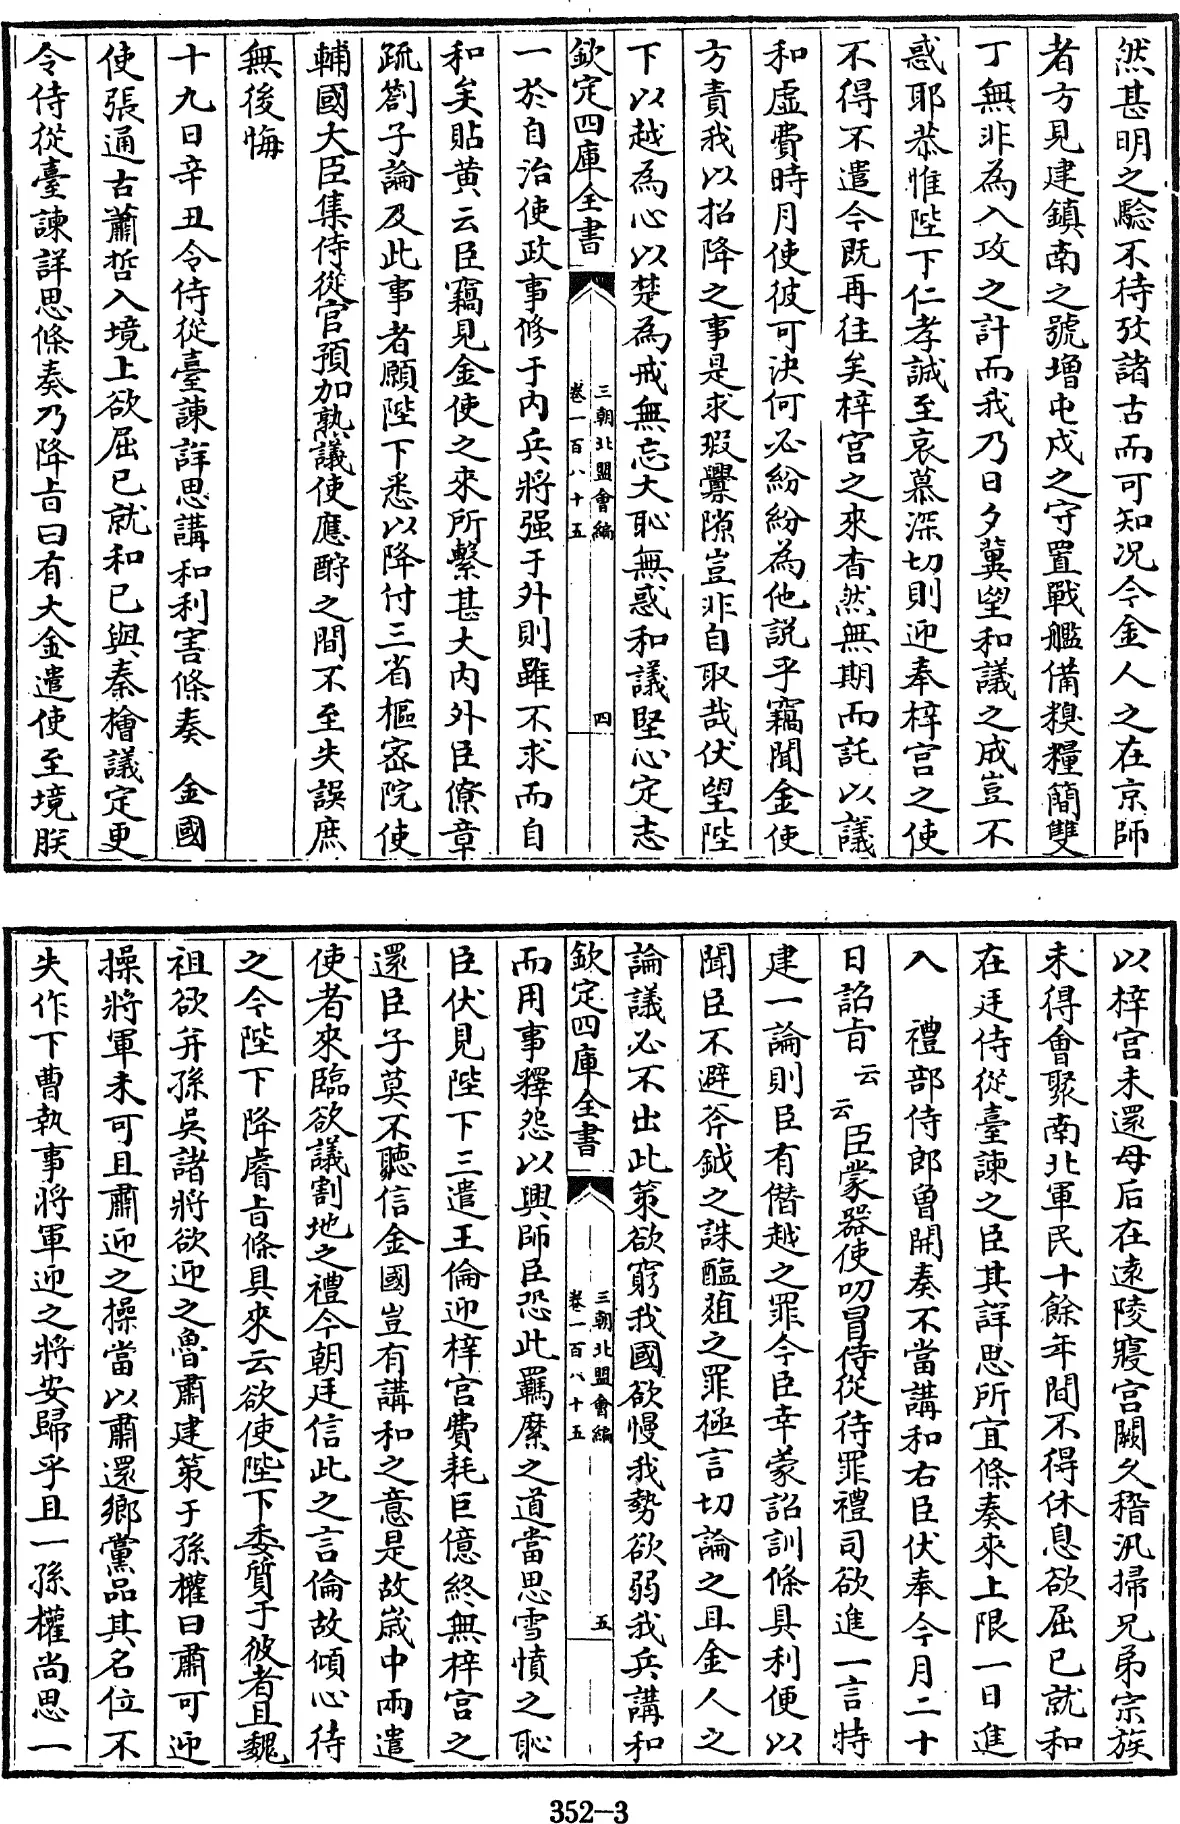 然甚明之驗不待攷諸古而可知况今金人之在京師
者方見建鎮南之號增屯戍之守置戰艦備糗糧簡雙
丁無非為入攻之計而我乃日夕冀望和議之成豈不
惑耶恭惟陛下仁孝誠至哀慕深切則迎奉梓宫之使
不得不遣今既再往矣梓宫之來杳然無期而託以議
和虚費時月使彼可決何必紛紛為他説乎竊聞金使
方責我以招降之事是求瑕釁隙豈非自取哉伏望陛
下以越為心以楚為戒無忘大恥無惑和議堅心定志
欽定四庫全書
三朝北盟會編
卷一百八十五
四
一於自治使政事修于内兵將强于外則雖不求而自
和矣貼黄云臣竊見金使之來所繫甚大内外臣僚章
疏劄子論及此事者願陛下悉以降付三省樞宻院使
輔國大臣集侍從官預加熟議使應酧之間不至失誤庶
無後悔
十九日辛丑令侍從臺諫詳思講和利害條奏 金國
使張通古蕭哲入境上欲屈已就和已與秦檜議定更
令侍從臺諫詳思條奏乃降㫖曰有大金遣使至境朕
以梓宫未還母后在逺陵寢宫闕久稽汛掃兄弟宗族
未得㑹聚南北軍民十餘年間不得休息欲屈已就和
在廷侍從臺諫之臣其詳思所宜條奏來上限一日進
入 禮部侍郎曾開奏不當講和右臣伏奉今月二十
日詔㫖云云臣蒙器使叨冒侍從待罪禮司欲進一言特
建一論則臣有僭越之罪今臣幸蒙詔訓條具利便以
聞臣不避斧鉞之誅醢葅之罪極言切論之且金人之
論議必不出此策欲窮我國欲慢我勢欲弱我兵講和
欽定四庫全書
三朝北盟會編
卷一百八十五
五
而用事釋怨以興師臣恐此羈縻之道當思雪憤之恥
臣伏見陛下三遣王倫迎梓宫費耗巨億終無梓宫之
還臣子莫不聽信金國豈有講和之意是故嵗中兩遣
使者來臨欲議割地之禮今朝廷信此之言倫故傾心待
之今陛下降睿㫖條具來云欲使陛下委質于彼者且魏
祖欲并孫吳諸將欲迎之魯肅建策于孫權曰肅可迎
操將軍未可且肅迎之操當以肅還鄉黨品其名位不
失作下曹執事將軍迎之將安歸乎且一孫權尚思一
352-3